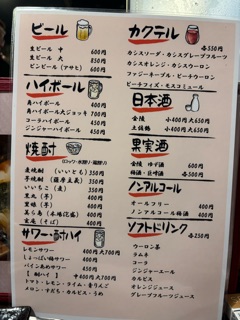 ビール
生ビール 中 600円
生ビール 大 850円
ビンビール (アサヒ) 600円
ハイボール
角ハイボール 400円
角ハイボール大ジョッキ 700円
コーラハイボール 450円
ジンジャーハイボール 450円
焼酎
(ロック・水割り・湯割り)
麦焼酎 (いいとも) 350円
芋焼酎 (薩摩立義) 350円
いいちこ (麦) 350円
黒丸 (芋) 400円
黒霧 (芋) 400円
サワー・酎ハイ
レモンサワー 400円 大700円
しょっぱい梅サワー 450円
パインあめサワー 450円
【 酎ハイ 】 中400円 大700円
トマト・レモン・ライム・青りんご
メロン・すだち・カルピス・うめ
カクテル
各550円
カシスソーダ・カシスグレープフルーツ
カシスオレンジ・カシスウーロン
ファジーネーブル・ピーチウーロン
ピーチフィズ・モスコミュール
日本酒
金陵 小400円 大650円
土佐鶴 小400円 大650円
果実酒
金陵・ゆず酒 600円
梅酒・豆州酒 各500円
ノンアルコール
オールフリー 400円
ノンアルコール梅酒 400円
ソフトドリンク
各250円
ウーロン茶
ラムネ
コーラ
ジンジャーエール
カルピス
オレンジジュース
グレープフルーツジュース